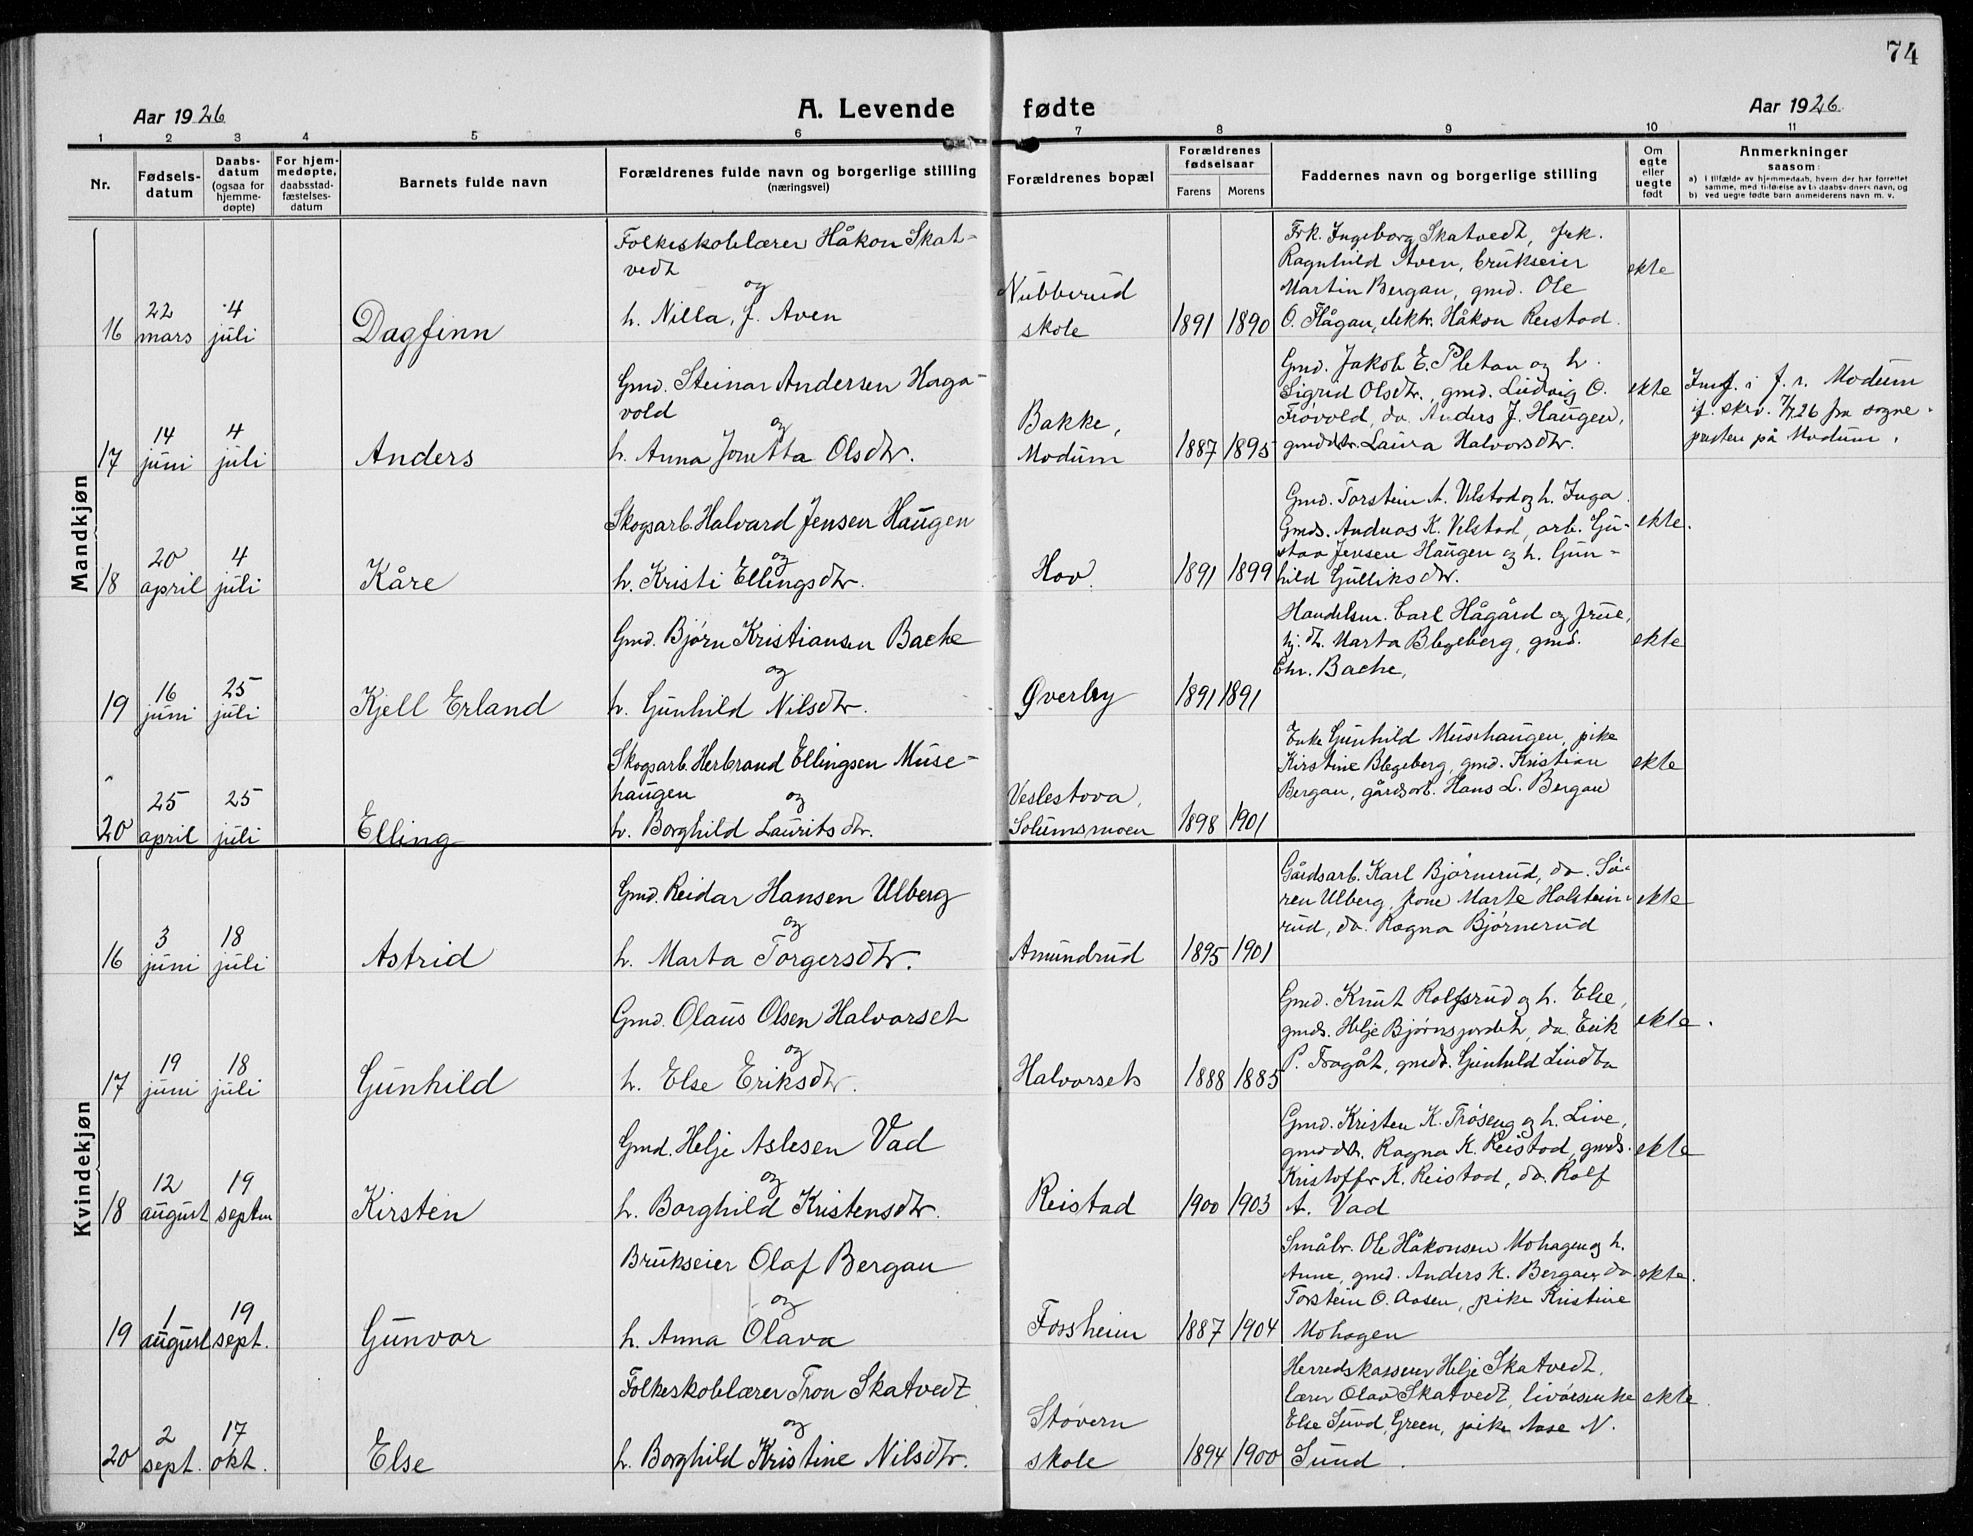 74
Aar 1926
A. Levende fødte
Aar 1926
1 2 3 4 5 6 7 8 9 10 11
Nr.
Fødsels-
datum
Daabs-
datum
(ogsaa for
hjemme-
døpte)
For hjem-
medøpte,
daabsstad-
fæstelses-
datum
Barnets fulde navn
Forældrenes fulde navn og borgerlige stilling
(næringsvei)
Forældrenes bopæl
Forældrenes
fødselsaar
Farens Morens
Faddernes navn og borgerlige stilling
Om
egte
eller
uegte
født
Anmerkninger
saasom:
a) I tilfælde av hjemmedaab, hvem der har forrettet
samme, med tilføielse av vedkommendes navn, og
b) ved uegte fødte barn anmelderens navn m. v.
Mandkjøn
16
22
mars
4
juli
Dagfinn
Folkeskolelærer Håkon Skat-
vedt
og
h. Nilla, f. Aven
Nubberud
skole
1891 1890
Frk. Ingeborg Skatvedt, frk.
Ragnhild Aven, brukseier
Martin Bergan, gmd. Ole
O. Flågan, elektr. Håkon Reistad.
ekte
17
14
juni
4
juli
Anders
Gmd. Steinar Andersen Haga-
vold
og
h. Anna Jonetta Olsdtr.
Bakke,
Modum
1887 1895
Gmd. Jakob E. Pletan og h.
Sigrid Olsdtr., gmd. Ludvig O.
Frøvold, do. Anders J. Haugen,
gmddtr. Laura Halvorsdtr.
ekte
Innf. i f. r. Modum
if. skrv. 7/7 26 fra sogne-
presten på Modum.
18
20
april
4
juli
Kåre
Skogsarb. Halvard Jensen Haugen
og
h. Kristi Ellingsdtr.
Hov.
1891 1899
Gmd. Torstein A. Velstad og h. Inga.
Gmds. Andreas K. Velstad, arb. Gu-
stav Jensen Haugen og h. Gun-
hild Gulliksdtr.
ekte.
19
16
juni
25
juli
Kjell Erland
Gmd. Bjørn Kristiansen Bache
og
h. Gunhild Nilsdtr.
Øverby
1891 1891
Handelsm. Carl Hågård og frue,
hj. dt. Marta Blegeberg, gmd.
Chr. Bache,
ekte
20
25
april
25
juli
Elling
Skogsarb. Herbrand Ellingsen Muse-
haugen og
h. Borghild Lauritsdtr.
Veslestova,
Solumsmoen
1898 1901
Enke Gunhild Musehaugen, pike
Kirstine Blegeberg, gmd. Kristian
Bergan, gårdsarb. Hans L. Bergan
ekte
Kvindekjøn
16
3
juni
18
juli
Astrid
Gmd. Reidar Hansen Ulberg
og
h. Marta Torgersdtr.
Amundrud
1895 1901
Gårdsarb. Karl Bjørnerud, do. Sø-
ren Ulberg, kone Marte Holstein-
rud, do. Ragna Bjørnerud
ekte
17
19
juni
18
juli
Gunhild
Gmd. Olaus Olsen Halvorset
og
h. Else Eriksdtr.
Halvorsets
1888 1885
Gmd. Knut Rolfsrud og h. Else,
gmds. Helje Bjørnsjordet, do. Erik
P. Fragåt, gmds. Gunhild Lindbo
ekte.
18
12
august
19
septm
Kirsten
Gmd. Helje Aslesen Vad
og
h. Borghild Kristensdtr.
Reistad
1900 1903
Gmd. Kristen K. Trøseng og h. Live,
gmddtr. Ragna K. Reistad, gmds.
Kristoffer K. Reistad, do. Rolf
A. Vad
ekte
19
1
august
19
sept.
Gunvor
Brukseier Olaf Bergan
og
h. Anna Olava
Forsheim
1887 1904
Småbr. Ole Håkonsen Mohagen og h.
Anne, gmd. Anders K. Bergan, do.
Torstein O. Aasen, pike Kristine
Mohagen
ekte.
20
2
sept.
17
okt.
Else
Folkeskolelærer Tron Skatvedt
og
h. Borghild Kristine Nilsdtr.
Støvern
skole
1894 1900
Herredskasserer Helje Skatvedt,
lærer Olav Skatvedt,
Else Sund, Green, pike Aase N.
Sund.
ekte.